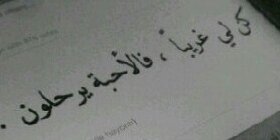 كن لي غريباً ، فالأحبة يرحلون .